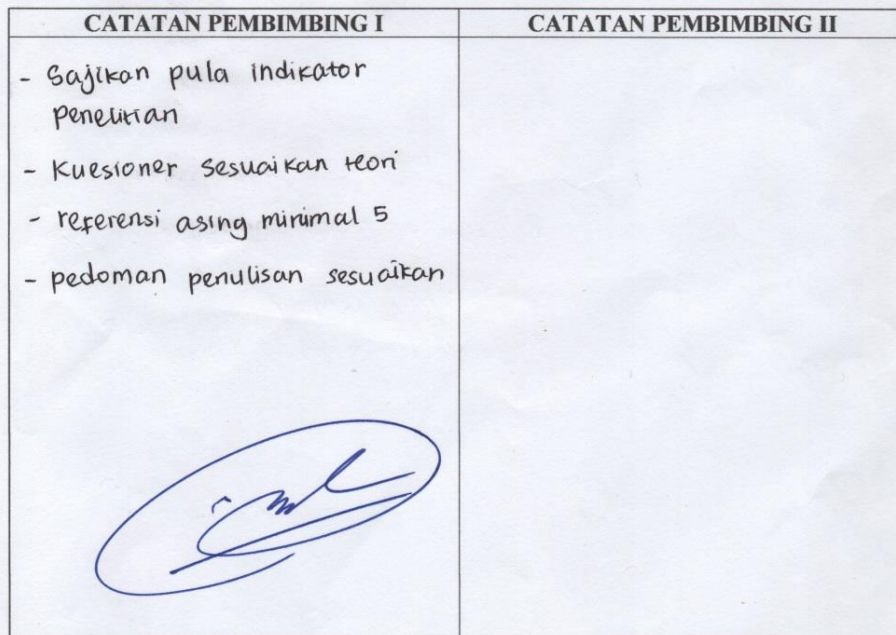 CATATAN PEMBIMBING I
CATATAN PEMBIMBING II
- Sajikan pula indikator
penelitian
- Kuesioner sesuaikan teori
- referensi asing minimal 5
- pedoman penulisan sesuaikan